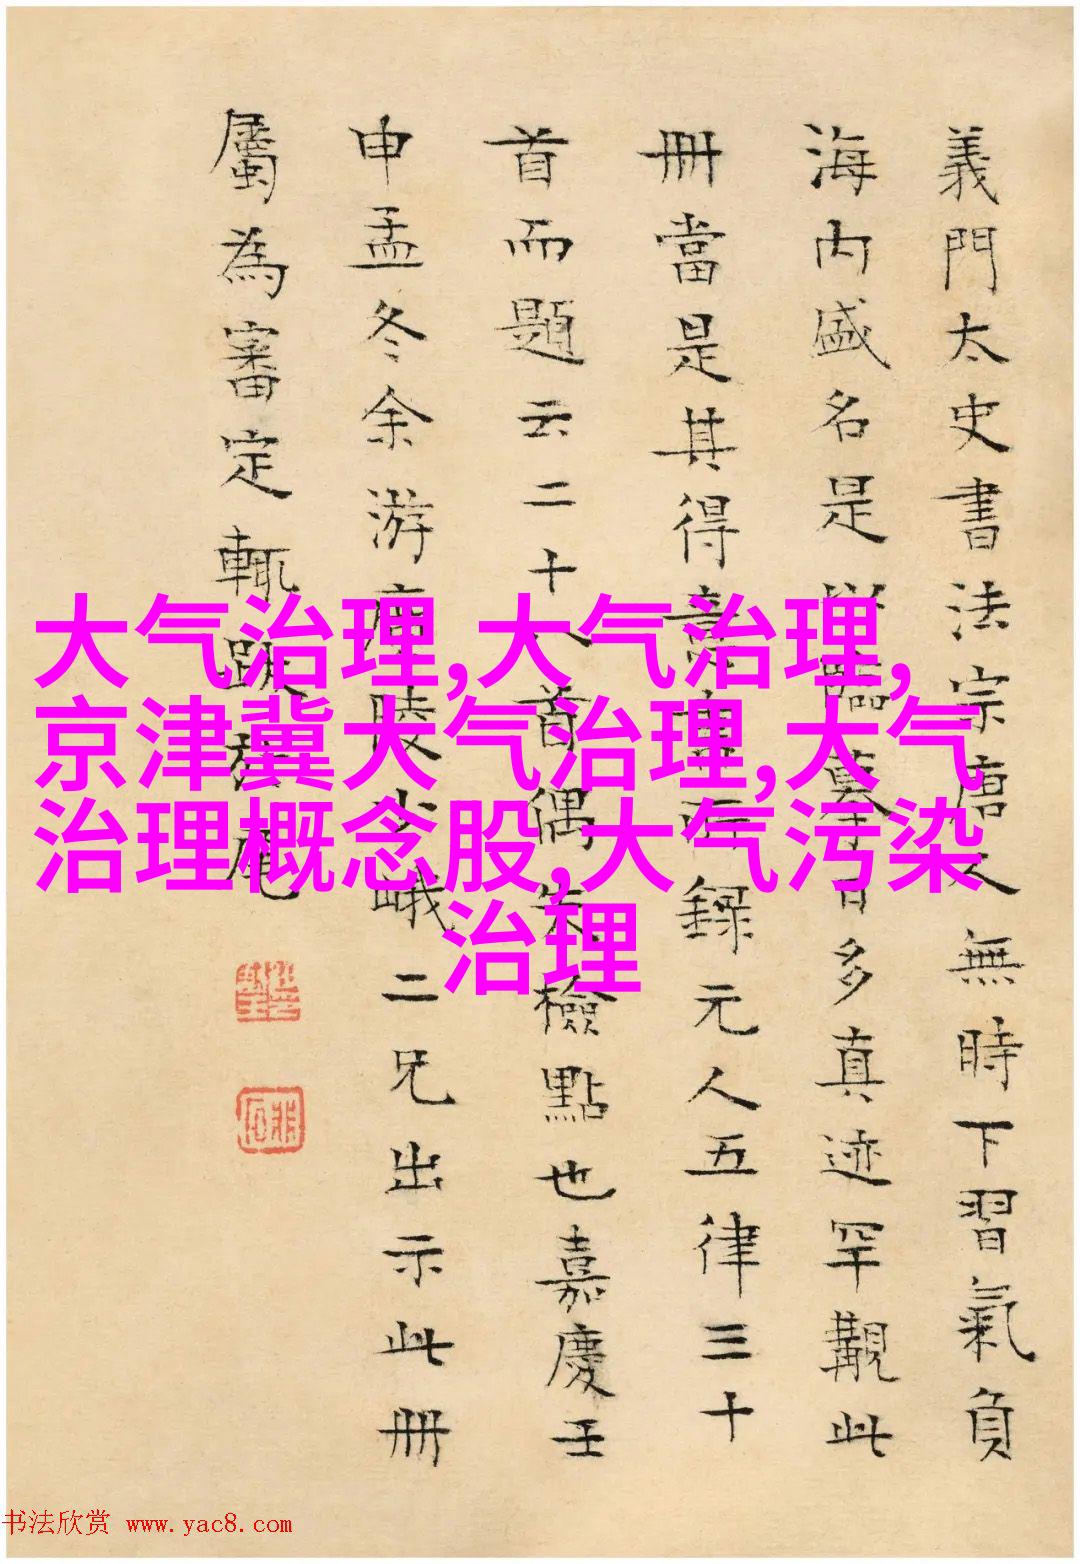 義門太史書法宗唐人無時下習氣負
海内盛名是臨摹多真迹罕覯此
冊當是其得録元人五律三十
首而題云二十首偶失檢點也嘉慶壬
申孟冬余游陵少峨二兄出示此冊
屬為審定輒跋尾
大气治理,大气治理,
京津冀大气治理,大气
治理概念股,大气污染
治理
书法欣赏 www.yac8.com